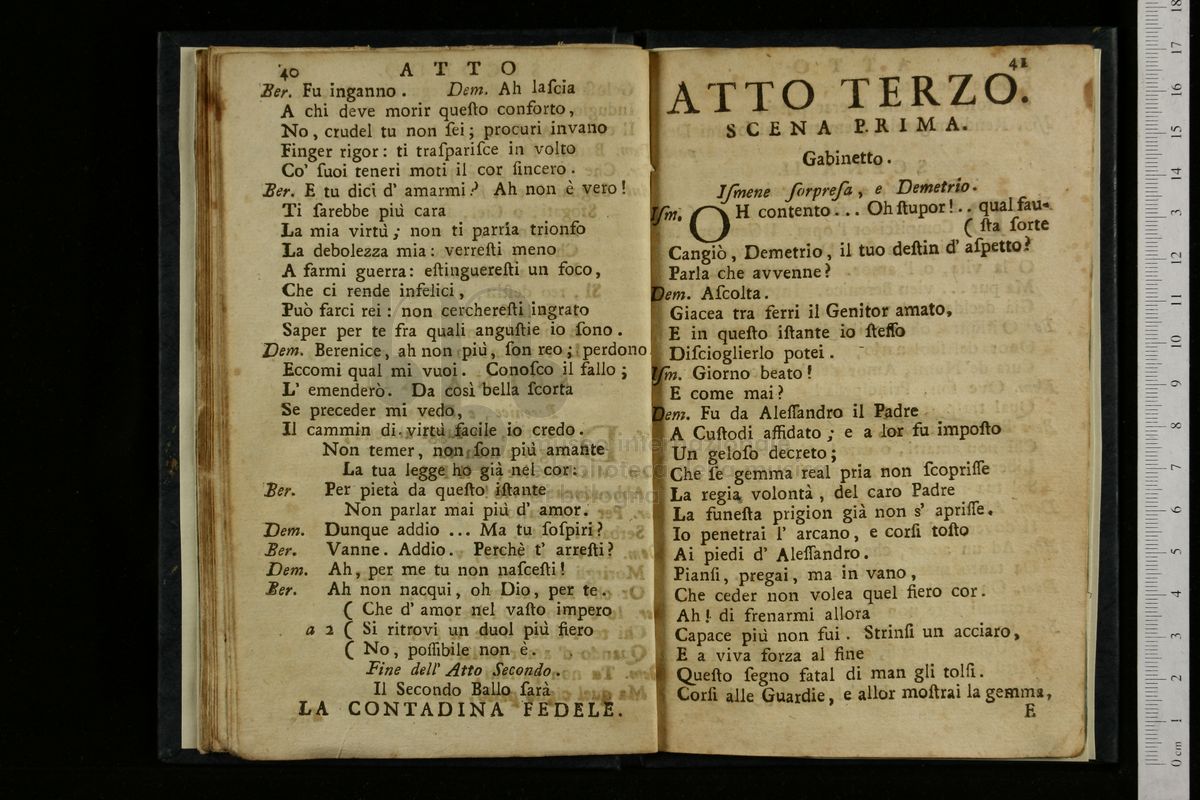 40 ATTO
Ber. Fu inganno. Dem. Ah laſcia
A chi deve morir queſto conforto,
No, crudel tu non ſei; procuri invano
Finger rigor: ti traſpariſce in volto
Co' ſuoi teneri moti il cor ſincero.
Ber. E tu dici d' amarmi? Ah non è vero!
Ti ſarebbe più cara
La mia virtù; non ti parria trionfo
La debolezza mia: verreſti meno
A farmi guerra: eſtinguereſti un foco,
Che ci rende infelici,
Può farci rei: non cerchereſti ingrato
Saper per te fra quali anguſtie io ſono.
Dem. Berenice, ah non più, ſon reo; perdono
Eccomi qual mi vuoi. Conoſco il fallo;
L' emenderò. Da così bella ſcorta
Se preceder mi vedo,
Il cammin di virtù facile io credo.
Non temer, non ſon più amante
La tua legge ho già nel cor:
Ber. Per pietà da queſto iſtante
Non parlar mai più d' amor.
Dem. Dunque addio ... Ma tu ſoſpiri?
Ber. Vanne. Addio. Perchè t' arreſti?
Dem. Ah, per me tu non naſceſti!
Ber. Ah non nacqui, oh Dio, per te.
( Che d' amor nel vaſto impero
a 2 ( Si ritrovi un duol più fiero
( No, poſſibile non è.
Fine dell' Atto Secondo.
Il Secondo Ballo ſarà
LA CONTADINA FEDELE.
41
ATTO TERZO.
SCENA PRIMA.
Gabinetto.
Iſmene ſorpreſa, e Demetrio.
Iſm. OH contento... Oh ſtupor!.. qual fau-
( ſta ſorte
Cangiò, Demetrio, il tuo deſtin d' aſpetto?
Parla che avvenne?
Dem. Aſcolta.
Giacea tra ferri il Genitor amato,
E in queſto iſtante io ſteſſo
Diſcioglierlo potei.
Iſm. Giorno beato!
E come mai?
Dem. Fu da Aleſſandro il Padre
A Cuſtodi affidato; e a lor fu impoſto
Un geloſo decreto;
Che ſe gemma real pria non ſcopriſſe
La regia volontà, del caro Padre
La funeſta prigion già non s' apriſſe.
Io penetrai l' arcano, e corſi toſto
Ai piedi d' Aleſſandro.
Pianſi, pregai, ma in vano,
Che ceder non volea quel fiero cor.
Ah! di frenarmi allora
Capace più non fui. Strinſi un acciaro,
E a viva forza al fine
Queſto ſegno fatal di man gli tolſi.
Corſi alle Guardie, e allor moſtrai la gemma,
E